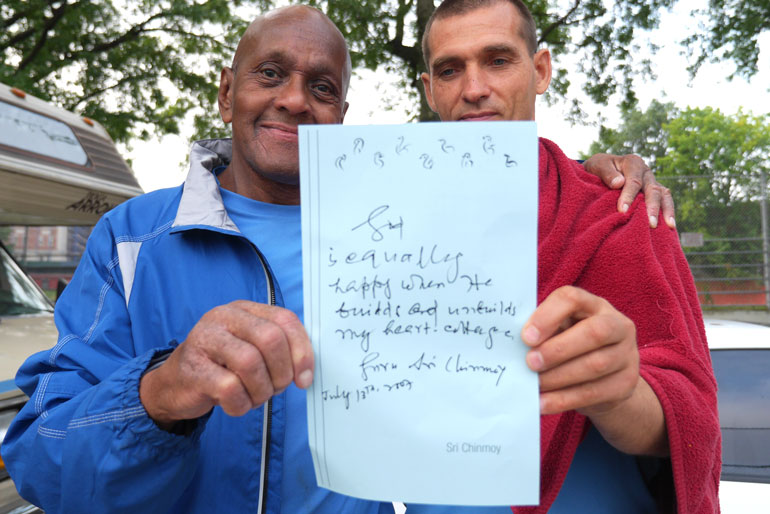 God
is equally
happy when He
builds and unbuilds
my heart-cottage.
from Sri Chinmoy
July 2007
Sri Chinmoy